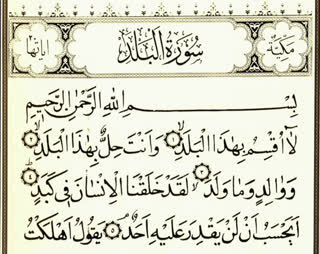 مكية سورة البلد ٢٠ آياتها
بِسْمِ اللهِ الرَّحْمٰنِ الرَّحِيمِ
لَا أُقْسِمُ بِهٰذَا الْبَلَدِ ﴿١﴾ وَأَنْتَ حِلٌّ بِهٰذَا الْبَلَدِ ﴿٢﴾
وَوَالِدٍ وَمَا وَلَدَ ﴿٣﴾ لَقَدْ خَلَقْنَا الْإِنْسَانَ فِي كَبَدٍ ﴿٤﴾
أَيَحْسَبُ أَنْ لَنْ يَقْدِرَ عَلَيْهِ أَحَدٌ ﴿٥﴾ يَقُولُ أَهْلَكْتُ